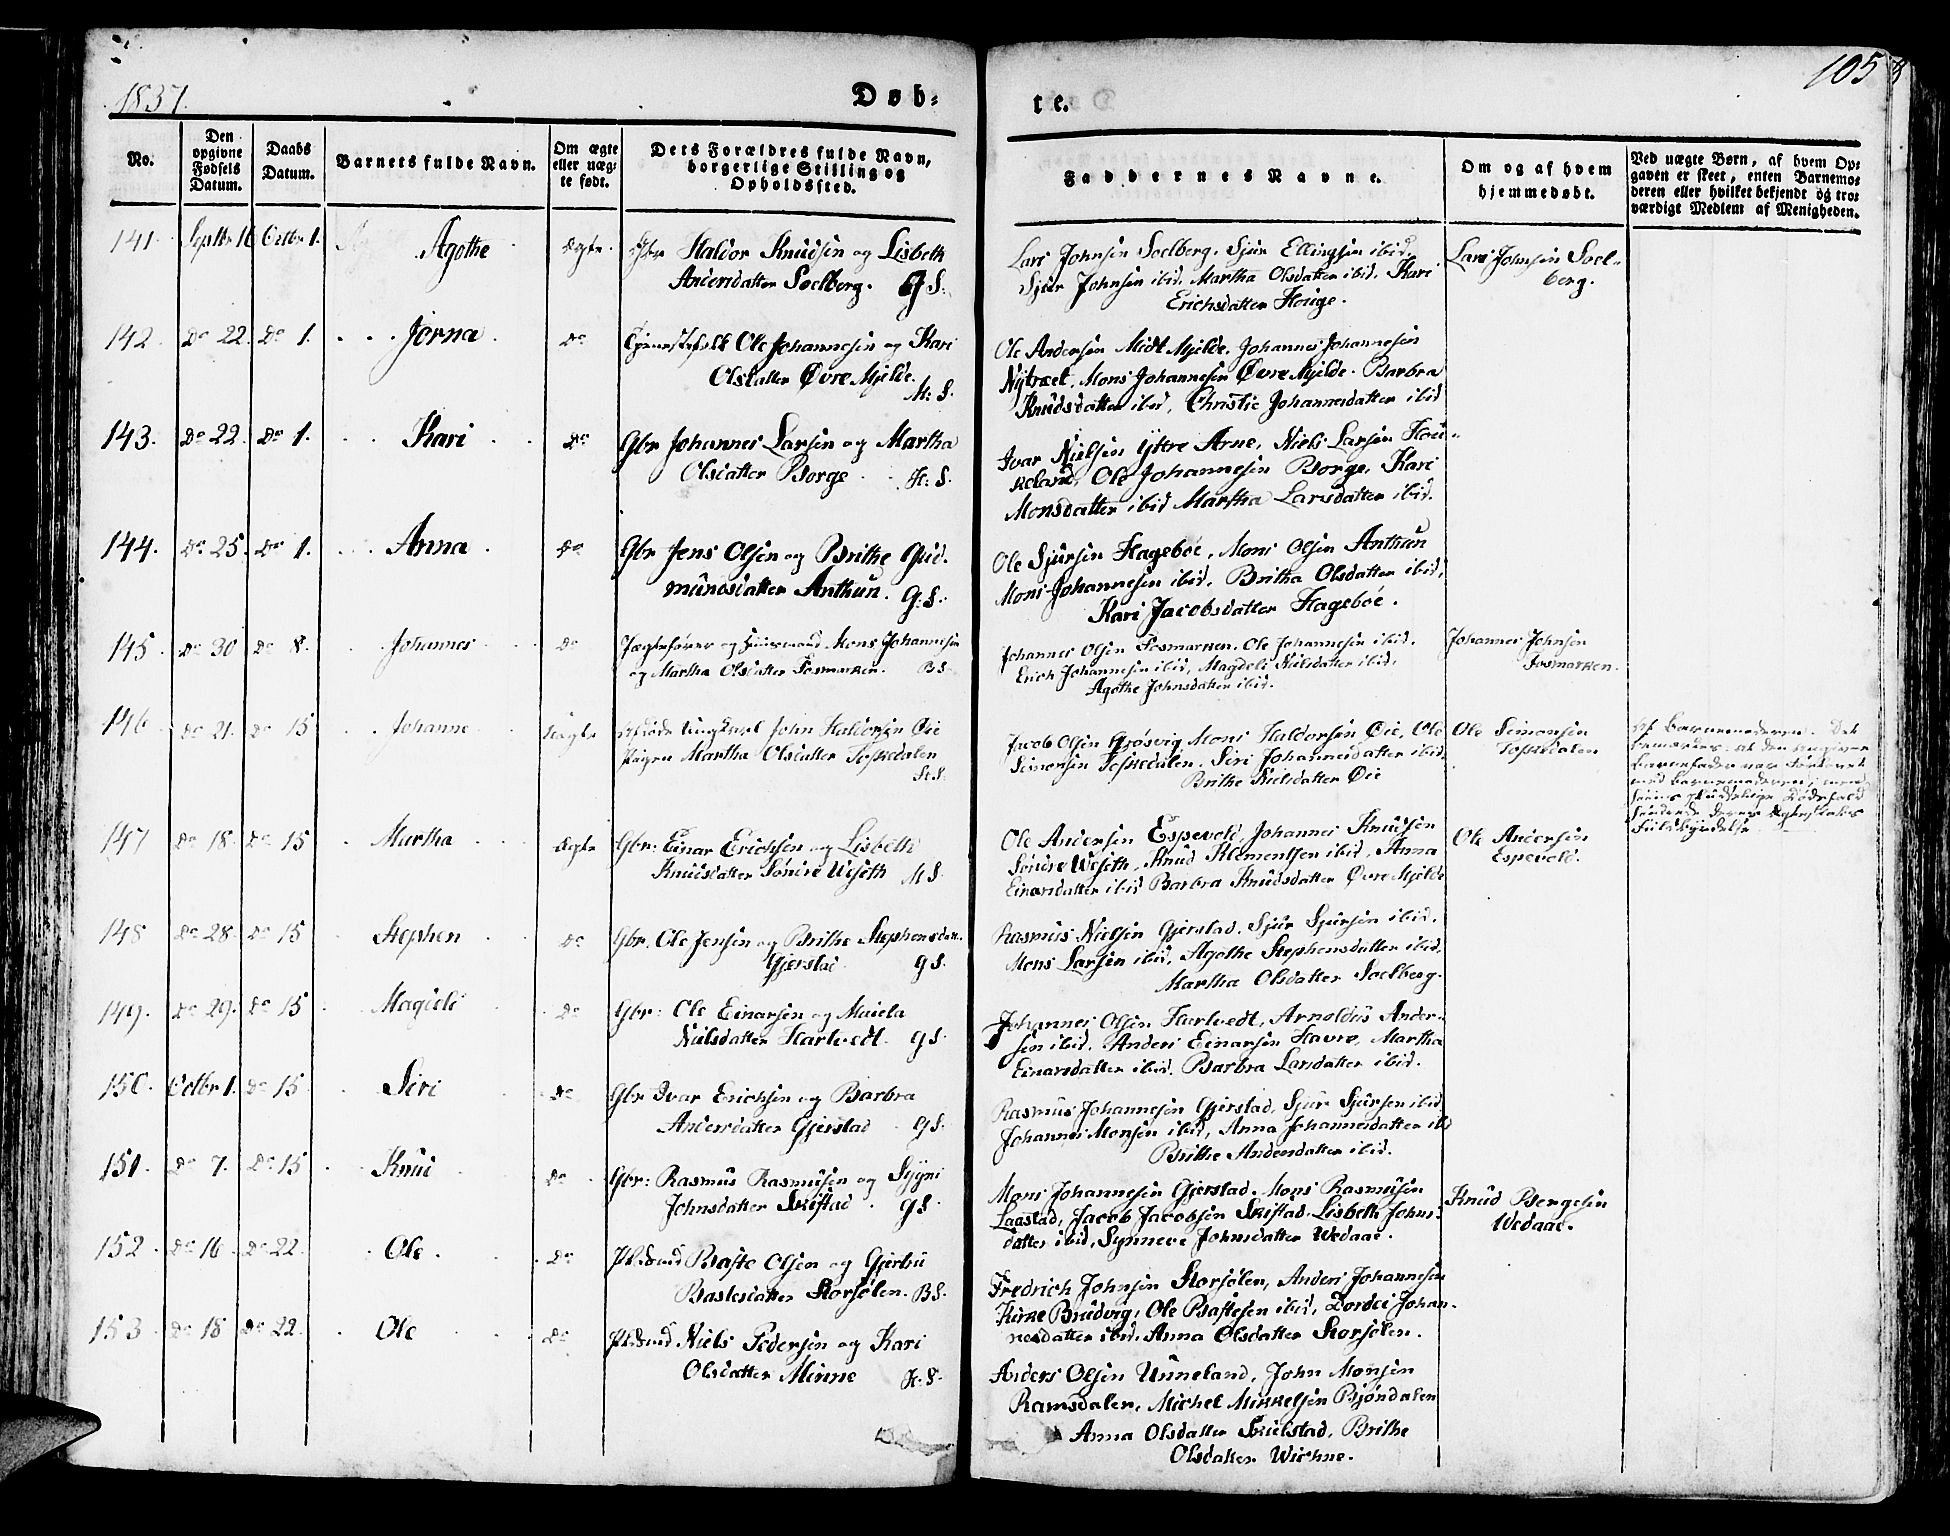 1837.
Døb-
te.
105
No.
Den opgivne Fødsels Datum.
Daabs Datum.
Barnets fulde Navn.
Om ægte eller uægte født.
Dets Forældres fulde Navn, borgerlige Stilling og Opholdssted.
Faddernes Navne.
Om og af hvem hjemmedøbt.
Ved uægte Børn, af hvem Opgaven er skeet, enten Barnemoderen eller hvilket bekjendt og troværdigt Medlem af Menigheden.
141. Septbr 16 Octbr 1. Agothe Ægte Gbr Haldor Knudsen og Lisbeth
Andersdatter Soelberg. G S.
Lars Johnsen Soelberg. Sjur Ellingsen ibid.
Sjur Johnsen ibid. Martha Olsdatter ibid. Kari
Erichsdatter Houge.
Lars Johnsen Soel-
berg.
142. Do 22. Do 1. Jorna Do Tjenestefolk Ole Johannesen og Kari
Olsdatter Øvre Mjelde. M: S.
Ole Andersen Midt Mjelde. Johannes Johannesen
Nytræet. Mons Johannesen Øvre Mjelde. Barbra
Knudsdatter ibid, Christie Johannesdatter ibid
143. Do 22. Do 1. Kari Do Gbr Johannes Larsen og Martha
Olsdatter Borge H: S.
Ivar Nielsen Yttre Arne, Niels Larsen Hou-
keland, Ole Johannesen Borge, Kari
Monsdatter ibid Martha Larsdatter ibid.
144. Do 25. Do 1. Anna Do Gbr Jens Olsen og Brithe Gud-
mundsdatter Anthun. G: S.
Ole Sjursen Hagebøe, Mons Olsen Anthun
Mons Johannesen ibid, Britha Olsdatter ibid,
Kari Jacobsdatter Hagebøe.
145. Do 30 Do 8. Johannes Do Jægtefører og Huusmand Mons Johannesen
og Martha Olsdatter Fosmarken. B S.
Johannes Olsen Fosmarken. Ole Johannesen ibid.
Erich Johannesen ibid, Magdeli Nielsdatter ibid,
Agothe Johnsdatter ibid.
Johannes Johnsen
Fosmarken.
146. Do 21. Do 15 Johanne Uægte Afdøde Ungkarl John Haldorsen Øie
Pigen Martha Olsdatter Toskedalen H: S.
Jacob Olsen Grøsvig, Mons Haldorsen Øie, Ole
Simonsen Toskedalen. Siri Johannesdatter ibid.
Brithe Nielsdatter Øie
Ole Simonsen
Toskedalen
Af Barnemoderen. Det
bemærkes at den angivne
Barnefader var forlovet
med Barnemoderen, men
hans pludselige Dødsfald
hindrede deres Ægteskabs
Fuldbyrdelse.
147 Do 18. Do 15 Martha Ægte Gbr: Einar Erichsen og Lisbeth
Knudsdatter Søndre Wiseth M S.
Ole Andersen Espevold, Johannes Knudsen
Søndre Wiseth, Knud Klementsen ibid, Anna
Einarsdatter ibid Barbra Knudsdatter Øvre Mjelde
Ole Andersen
Espevold.
148 Do 28. Do 15 Stephen Do Gbr. Ole Jensen og Brithe Stephensdatt.
Gjerstad. G S.
Rasmus Nielsen Gjerstad. Sjur Sjursen ibid.
Mons Larsen ibid, Agothe Stephensdatter ibid,
Martha Olsdatter Soelberg.
149. Do 29. Do 15 Magdeli Do Gbr: Ole Einarsen og Maiela
Nielsdatter Hartvedt. G S.
Johannes Olsen Hartvedt, Arnoldus Ander-
sen ibid. Anders Einarsen Havre, Martha
Einarsdatter ibid. Barbra Larsdatter ibid.
150. Octbr 1. Do 15 Siri Do Gbr Ivar Erichsen og Barbra
Andersdatter Gjerstad G S.
Rasmus Johannesen Gjerstad, Sjur Sjursen ibid
Johannes Monsen ibid, Anna Johannesdatter ibid
Brithe Andersdatter ibid.
151. Do 7. Do 15 Knud Do Gbr: Rasmus Rasmusen og Sygni
Johnsdatter Skistad. G S.
Mons Johannesen Gjerstad. Mons Rasmusen
Laastad, Jacob Jacobsen Skistad. Lisbeth Johns-
datter ibid, Synneve Johnsdatter Wedaae.
Knud Bergesen
Wedaae.
152 Do 16 Do 22. Ole Do Pldsmd Baste Olsen og Gjerthu
Bastesdatter Storsølen. B S.
Fredrich Johnsen Storsølen, Anders Johannesen
Kirke Brudvig, Ole Bastesen ibid, Dordei Johan-
nesdatter ibid. Anna Olsdatter Storsølen.
153 Do 18 Do 22. Ole Do Pldsmd Niels Pedersen og Kari
Olsdatter Minne H: S.
Anders Olsen Unneland, John Monsen
Ramsdalen, Michel Mikkelsen Bjøndalen
Anna Olsdatter Skielstad, Brithe
Olsdatter Wickne.